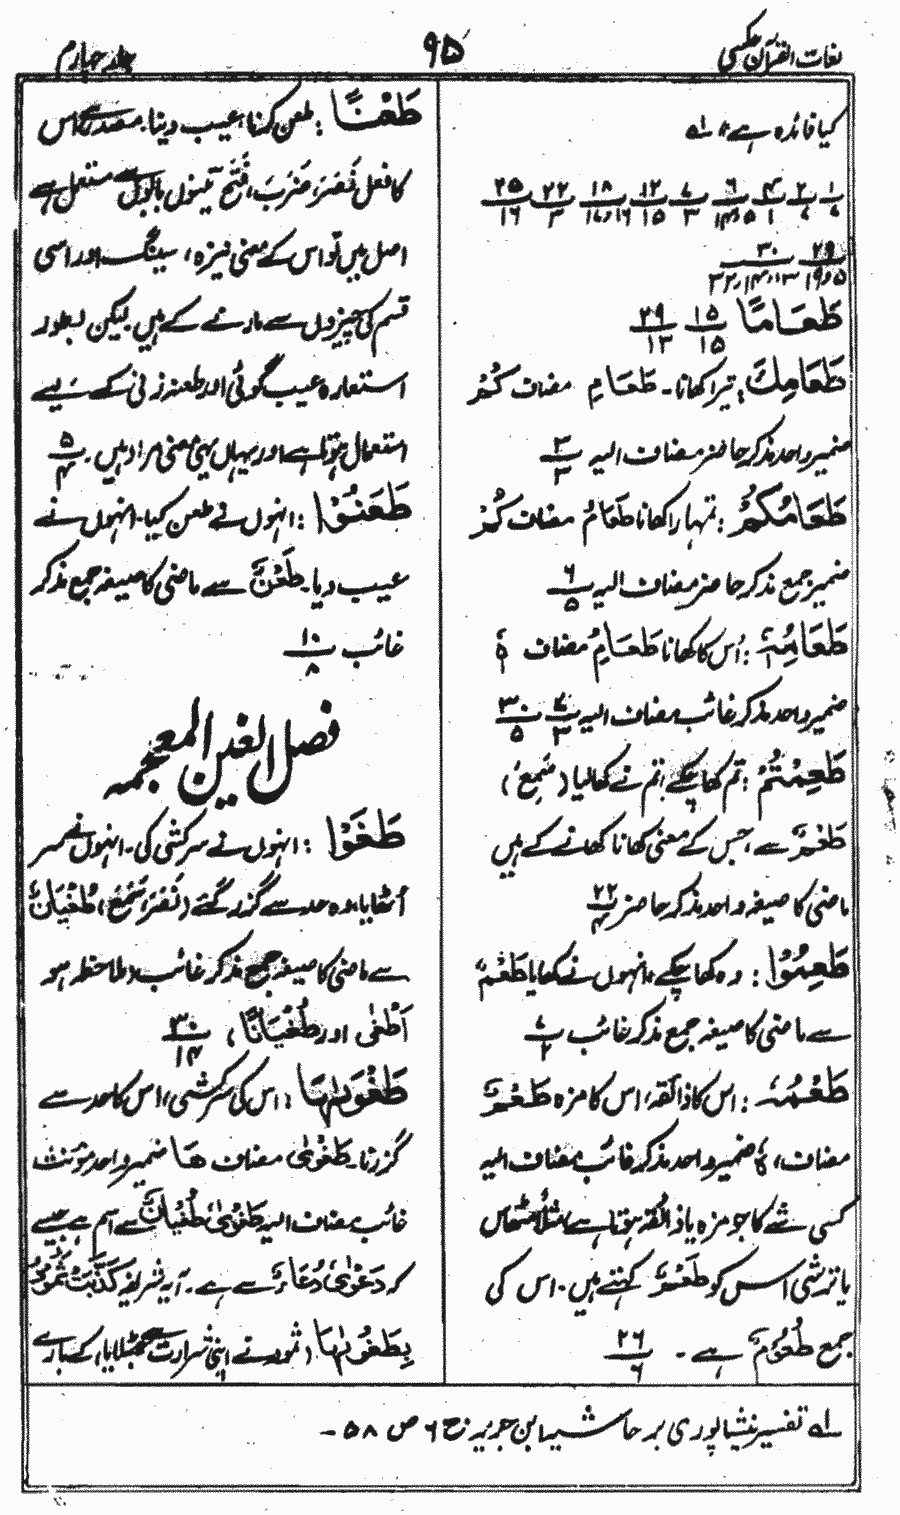 لغات القرآن عکسی
۹۵
جلد چہارم
کیا فائدہ ہے؟ ؎۱
۱/۷ ۲/۷ ۴/۱ ۶/۵و۱۴ ۷/۳ ۱۲/۱۵ ۱۸/۱۶و۱۷ ۲۲/۳ ۲۵/۱۶
۲۹/۵و۱۹ ۳۰/۱۳،۱۴،۳۲
طَعَامًا ۱۵/۱۵ ۲۹/۱۳
طَعَامِكَ: تیرا کھانا۔ طَعَامِ مضاف كَ
ضمیر واحد مذکر حاضر مضاف الیہ ۳/۳
طَعَامُكُمْ: تمہارا کھانا طَعَامُ مضاف كُمْ
ضمیر جمع مذکر حاضر مضاف الیہ ۶/۵
طَعَامِهٖ: اُس کا کھانا طَعَامِ مضاف هٖ
ضمیر واحد مذکر غائب مضاف الیہ ۷/۳ ۳۰/۵
طَعِمْتُمْ: تم کھا چکے، تم نے کھا لیا (سَمِعَ)
طَعْمٌ سے، جس کے معنی کھانا کھانے کے ہیں
ماضی کا صیغہ واحد مذکر حاضر ۲۲/۴
طَعِمُوْا: وہ کھا چکے، انہوں نے کھایا طَعْمٌ
سے ماضی کا صیغہ جمع مذکر غائب ۷/۲
طَعْمُهٗ: اس کا ذائقہ، اس کا مزہ طَعْمُ
مضاف، هٗ ضمیر واحد مذکر غائب مضاف الیہ
کسی شے کا جو مزہ یا ذائقہ ہوتا ہے مثلاً مٹھاس
یا ترشی اس کو طَعْمٌ کہتے ہیں۔ اس کی
جمع طُعُوْمٌ ہے۔ ۲۶/۶
طَعْنًا: طعن کرنا، عیب دینا۔ مصدر ہے اس
کا فعل نَصَرَ، ضَرَبَ، فَتَحَ تینوں بابوں سے مستعمل ہے
اصل میں تو اس کے معنی نیزہ، سینگ اور اسی
قسم کی چیزوں سے مارنے کے ہیں لیکن بطور
استعارہ عیب گوئی اور طعنہ زنی کے لیے
استعمال ہوتا ہے اور یہاں یہی معنی مراد ہیں۔ ۵/۴
طَعَنُوْا: انہوں نے طعن کیا۔ انہوں نے
عیب دیا۔ طَعْنٌ سے ماضی کا صیغہ جمع مذکر
غائب ۱۰/۸
فصل الغین المعجمہ
طَغَوْا: انہوں نے سرکشی کی۔ انہوں نے سر
اُٹھایا، وہ حد سے گزر گئے (نَصَرَ، سَمِعَ) طُغْيَانٌ
سے ماضی کا صیغہ جمع مذکر غائب (ملاحظہ ہو
اَطْغٰى اور طُغْيَانًا) ۳۰/۱۴
طَغْوٰىهَا: اس کی سرکشی، اس کا حد سے
گزرنا۔ طَغْوٰى مضاف هَا ضمیر واحد مؤنث
غائب مضاف الیہ طَغْوٰى طُغْيَانٌ سے اسم ہے جیسے
کہ دَعْوٰى دُعَاءٌ سے ہے۔ آیہ شریفہ كَذَّبَتْ ثَمُوْدُ
بِطَغْوٰىهَا (ثمود نے اپنی شرارت سے جھٹلایا) کے بارے
؎۱ تفسیر نیشاپوری بر حاشیہ ابن جریر ج ۶ ص ۵۸۔